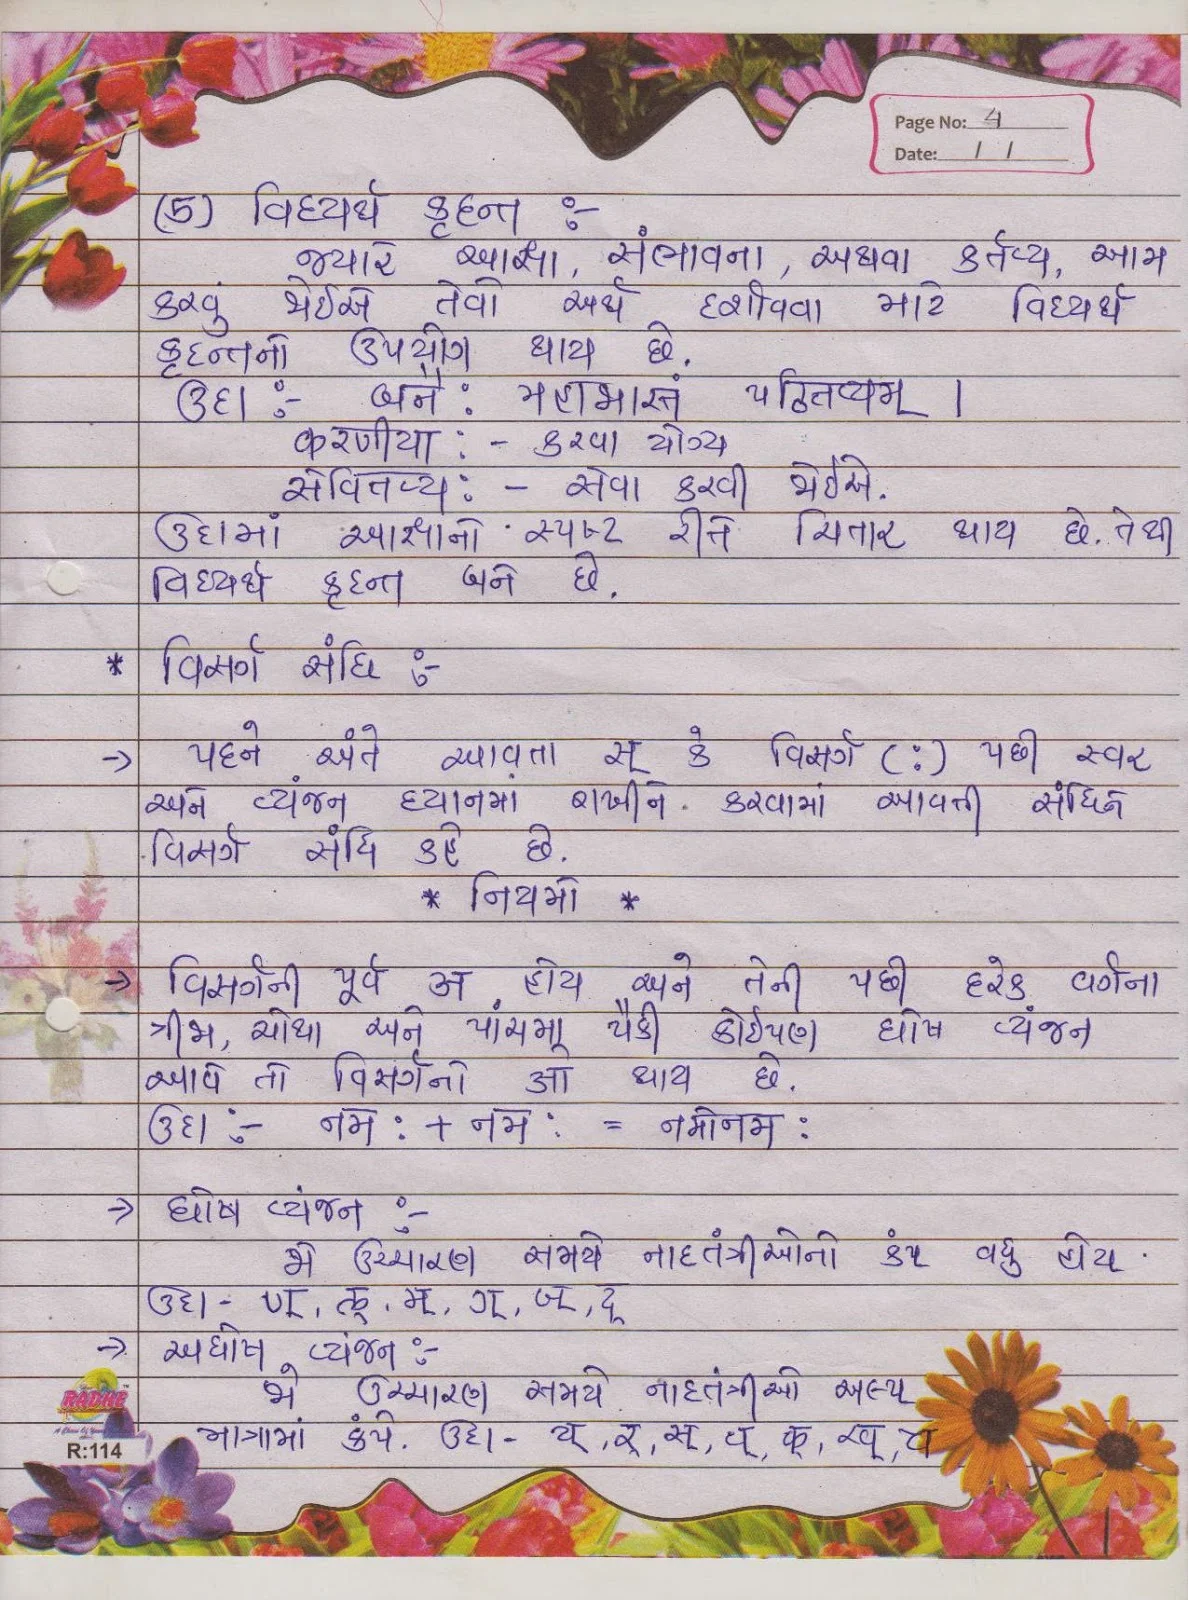 Page No: 4
Date: / /
(5) વિધ્યર્થ કૃદન્ત :-
જ્યારે આજ્ઞા, સંભાવના, અથવા કર્તવ્ય, આમ
કરવું જોઈએ તેવો અર્થ દર્શાવવા માટે વિધ્યર્થ
કૃદન્તનો ઉપયોગ થાય છે.
ઉદા :- જનૈઃ મહાભારતં પઠિતવ્યમ્ ।
करणीयाः - કરવા યોગ્ય
સેવિતવ્યઃ - સેવા કરવી જોઈએ.
ઉદામાં આજ્ઞાનો સ્પષ્ટ રીતે ચિતાર થાય છે. તેથી
વિધ્યર્થ કૃદન્ત બને છે.
* વિસર્ગ સંધિ :-
→ પદને અંતે આવતા સ્ કે વિસર્ગ (:) પછી સ્વર
અને વ્યંજન ધ્યાનમાં રાખીને કરવામાં આવતી સંધિને
વિસર્ગ સંધિ કહે છે.
* નિયમો *
→ વિસર્ગની પૂર્વ अ હોય અને તેની પછી દરેક વર્ગના
ત્રીજા, ચોથા અને પાંચમા પૈકી કોઈપણ ઘોષ વ્યંજન
આવે તો વિસર્ગનો ओ થાય છે.
ઉદા :- નમઃ + નમઃ = નમોનમઃ
→ ઘોષ વ્યંજન :-
જે ઉચ્ચારણ સમયે નાદતંત્રીઓનો કંપ વધુ હોય.
ઉદા - મ્, ગ્, જ્, દ્
→ અઘોષ વ્યંજન :-
જે ઉચ્ચારણ સમયે નાદતંત્રીઓ અલ્પ
માત્રામાં કંપે. ઉદા - સ્, ક્, ખ્
RADHE
R:114